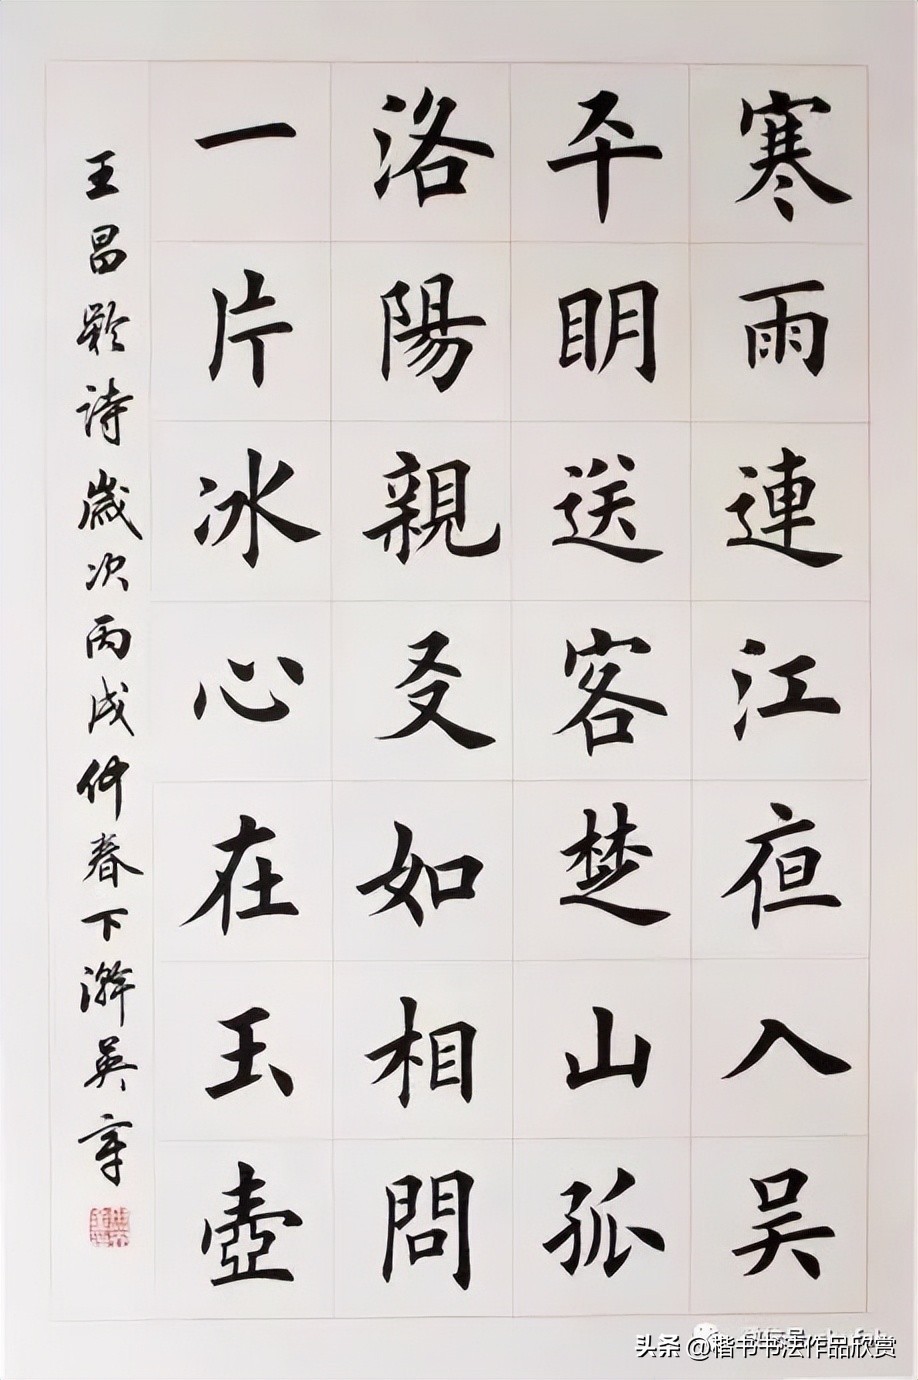 寒雨連江夜入吴
平明送客楚山孤
洛陽親友如相問
一片冰心在玉壺
王昌齡詩歲次丙戌仲春下澣英章
头条 @楷书书法作品欣赏